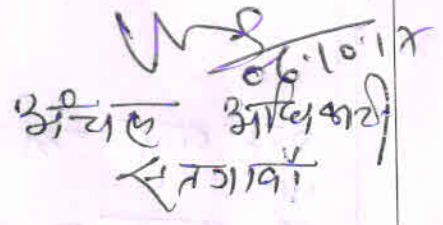 06.10.17
अंचल अधिकारी
सतगावाँ